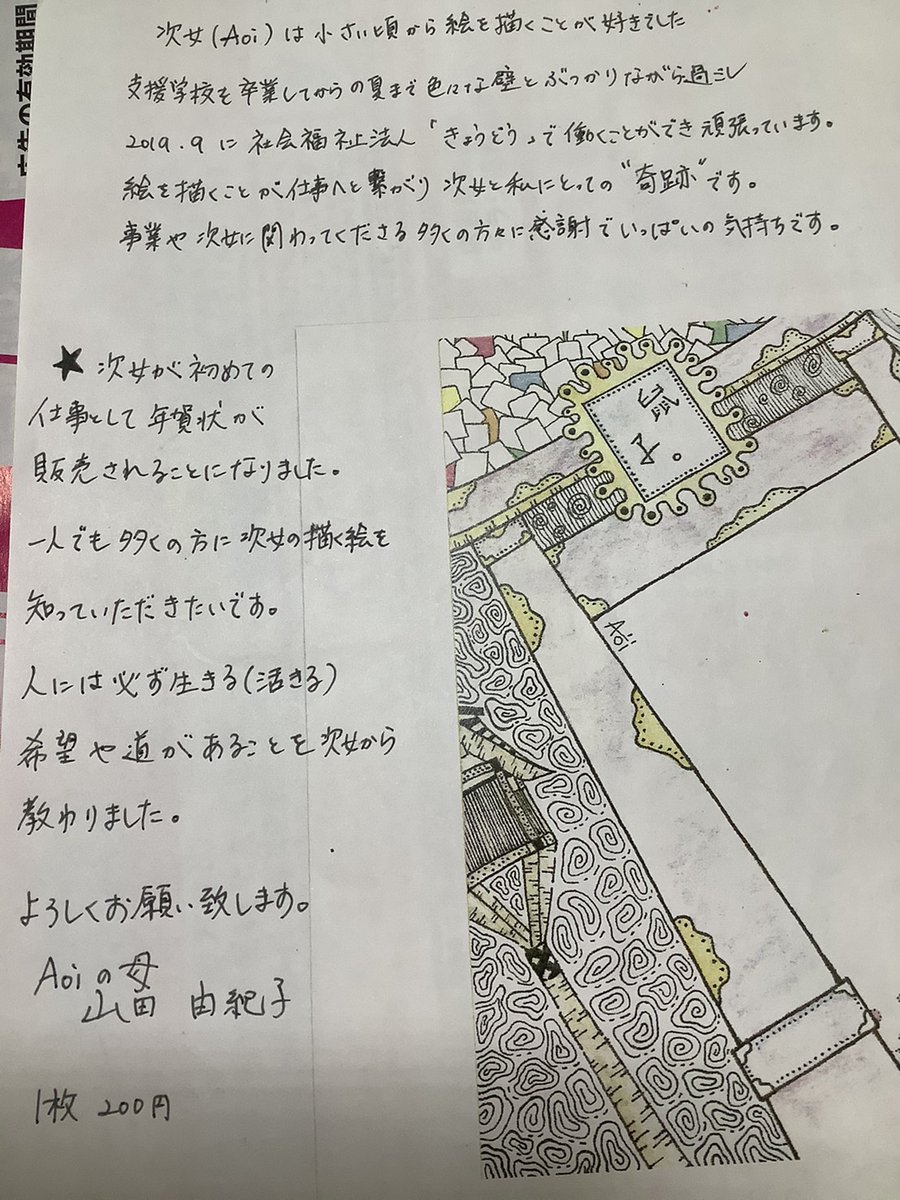 次女(Aoi)は小さい頃から絵を描くことが好きでした
支援学校を卒業してからの夏まで色々な壁とぶつかりながら過ごし
2019.9に社会福祉法人「きょうどう」で働くことができ頑張っています。
絵を描くことが仕事へと繋がり次女と私にとっての"奇跡"です。
事業や次女に関わってくださる多くの方々に感謝でいっぱいの気持ちです。
★次女が初めての
仕事として年賀状が
販売されることになりました。
一人でも多くの方に次女の描く絵を
知っていただきたいです。
人には必ず生きる(活きる)
希望や道があることを次女から
教わりました。
よろしくお願い致します。
Aoiの母
山田 由紀子
1枚 200円
鼠
子。
Aoi
の有効期間